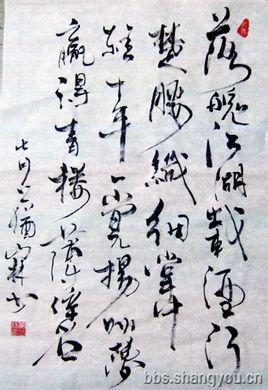 落魄江湖载酒行
楚腰纖细掌中
轻十年一觉揚州夢
赢得青楼薄倖名
七月
书
bbs.shangyou.cn